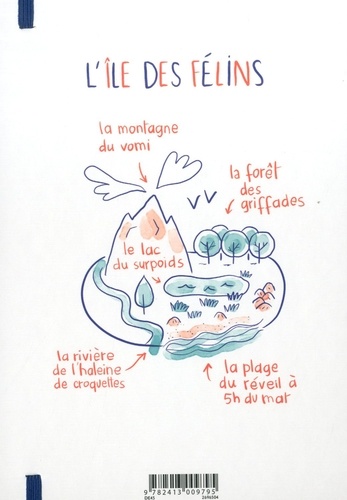 L'ÎLE DES FÉLINS
la montagne
du vomi
la forêt
des
griffades
le lac
du surpoids
la rivière
de l'haleine
de croquettes
la plage
du réveil à
5h du mat
9 782413 009795